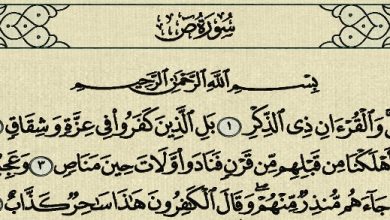 سُورَةُ صٓ
بِسْمِ اللَّهِ الرَّحْمَٰنِ الرَّحِيمِ
وَالْقُرْءَانِ ذِي الذِّكْرِ ١ بَلِ الَّذِينَ كَفَرُوا فِي عِزَّةٍ وَشِقَاقٍ
أَهْلَكْنَا مِن قَبْلِهِم مِّن قَرْنٍ فَنَادَوا وَّلَاتَ حِينَ مَنَاصٍ ٣
جَاءَهُم مُّنذِرٌ مِّنْهُمْ ۖ وَقَالَ الْكَافِرُونَ هَٰذَا سَاحِرٌ كَذَّابٌ